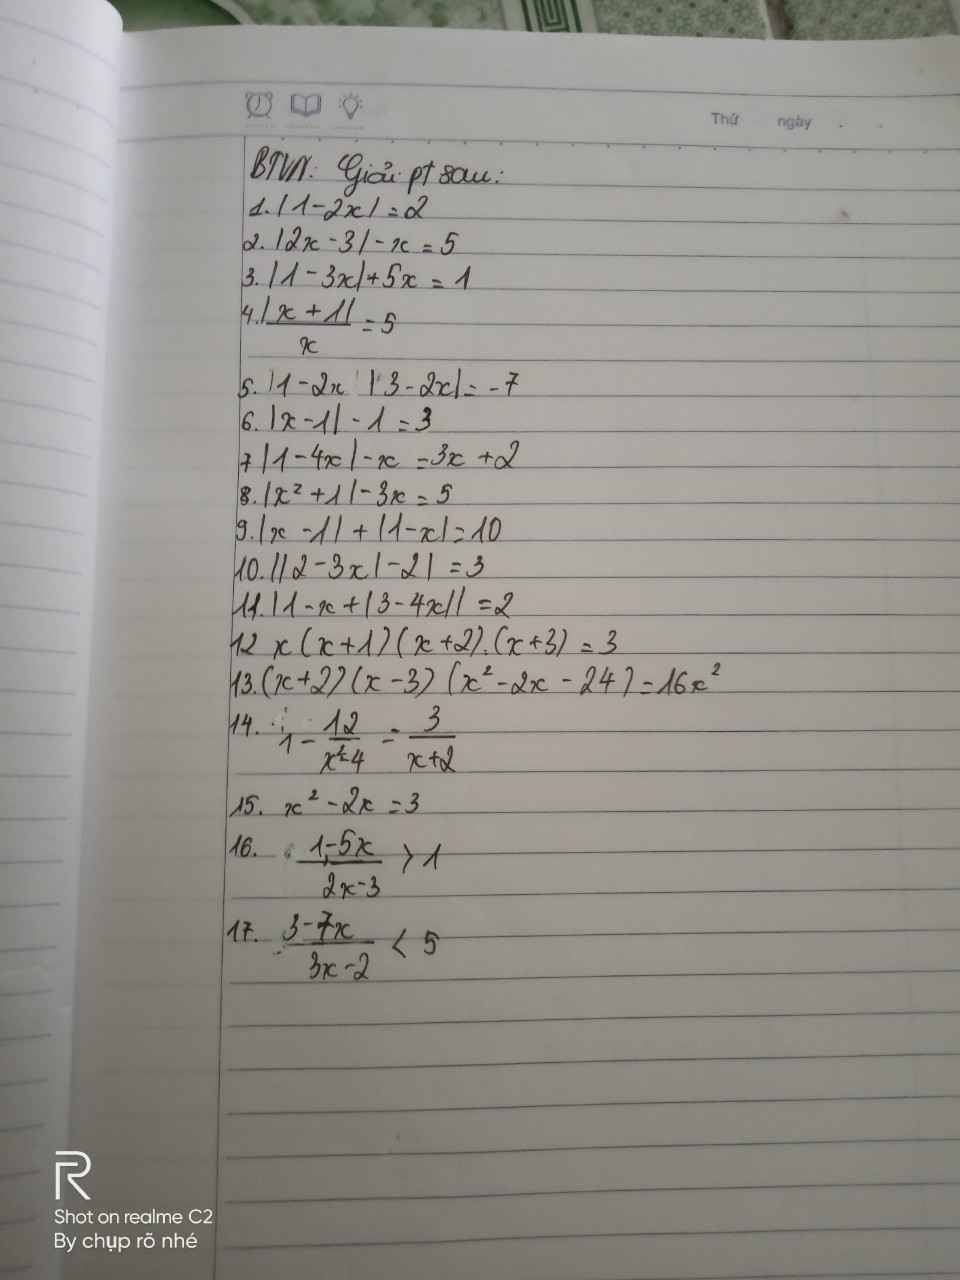 Thứ ngày
BTVN: Giải pt sau:
1. |1-2x| = 2
2. |2x-3| - x = 5
3. |1-3x| + 5x = 1
4. |x+1|/x = 5
5. |1-2x| |3-2x| = -7
6. |x-1| - 1 = 3
7 |1-4x| - x = 3x + 2
8. |x² + 1| - 3x = 5
9. |x - 1| + |1-x| = 10
10. ||2-3x| - 2| = 3
11. |1-x + |3-4x|| = 2
12 x(x+1)(x+2).(x+3) = 3
13. (x+2)(x-3)(x²-2x-24) = 16x²
14. 1 - 12/x²-4 = 3/x+2
15. x² - 2x = 3
16. 1-5x/2x-3 > 1
17. 3-7x/3x-2 < 5
R
Shot on realme C2
By chụp rõ nhé